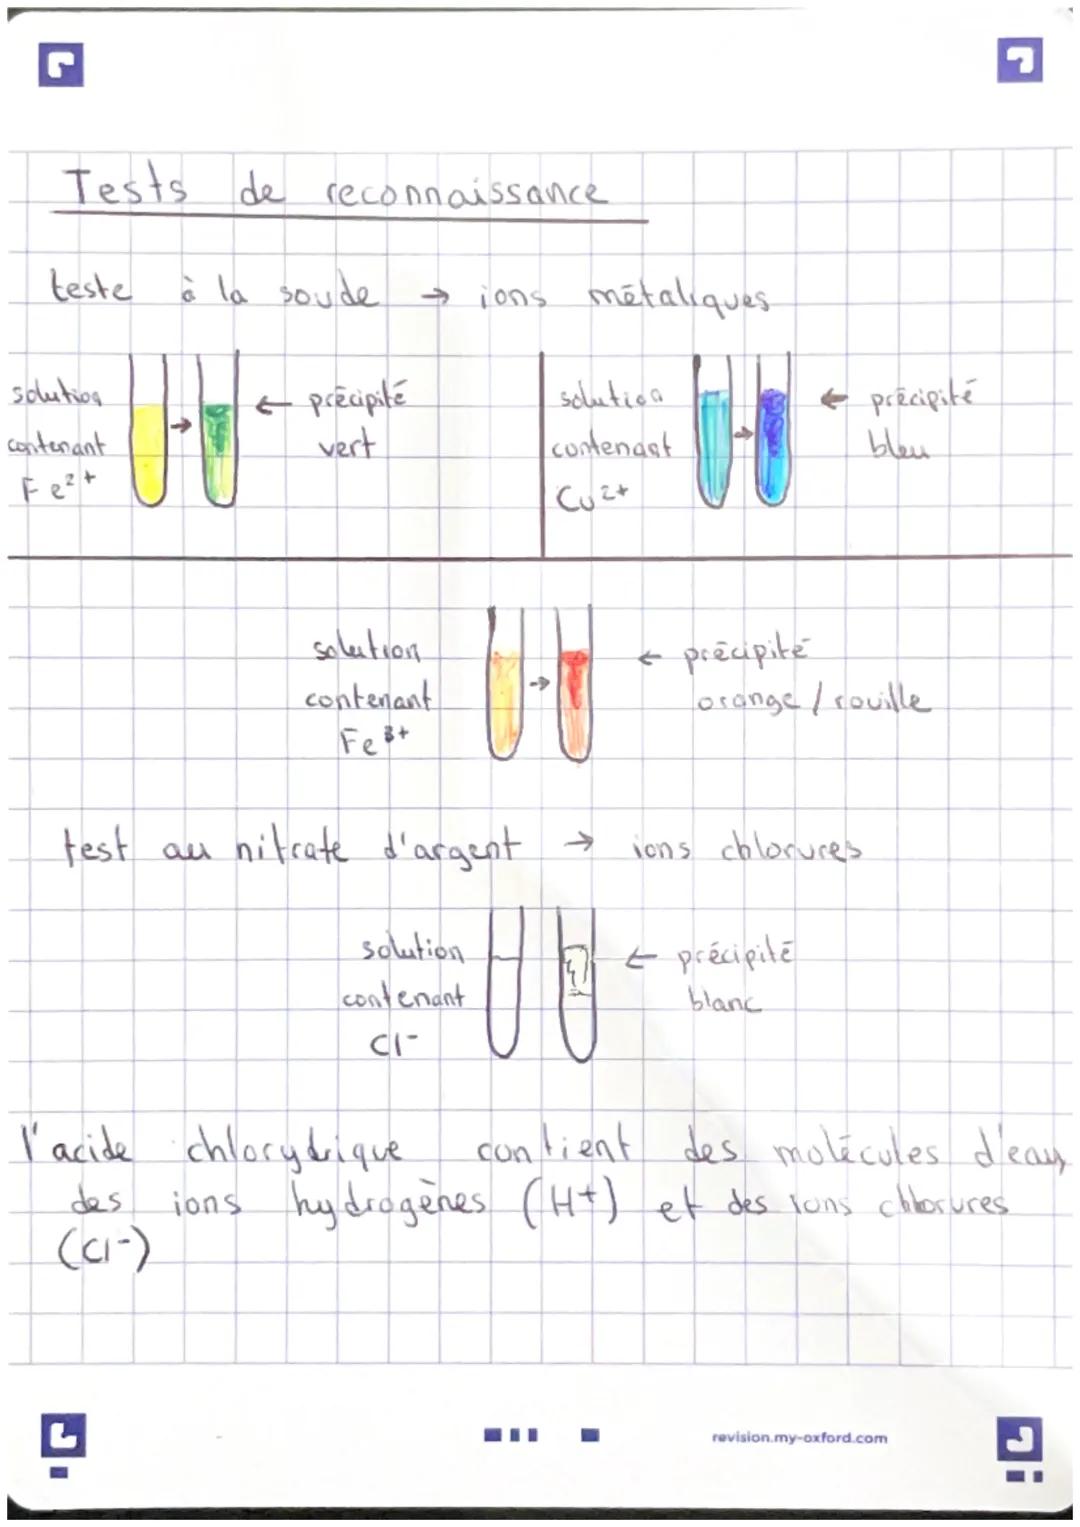 Tests de reconnaissance
teste à la soude → ions métaliques
solution
contenant
Fe²⁺
← précipité
vert
solution
contenant
Cu²⁺
← précipité
bleu
solution
contenant
Fe³⁺
← précipité
orange / rouille
test au nitrate d'argent → ions chlorures
solution
contenant
Cl⁻
← précipité
blanc
l'acide chlorydrique contient des molécules d'eau,
des ions hydrogènes (H⁺) et des ions chlorures
(Cl⁻)
revision.my-oxford.com